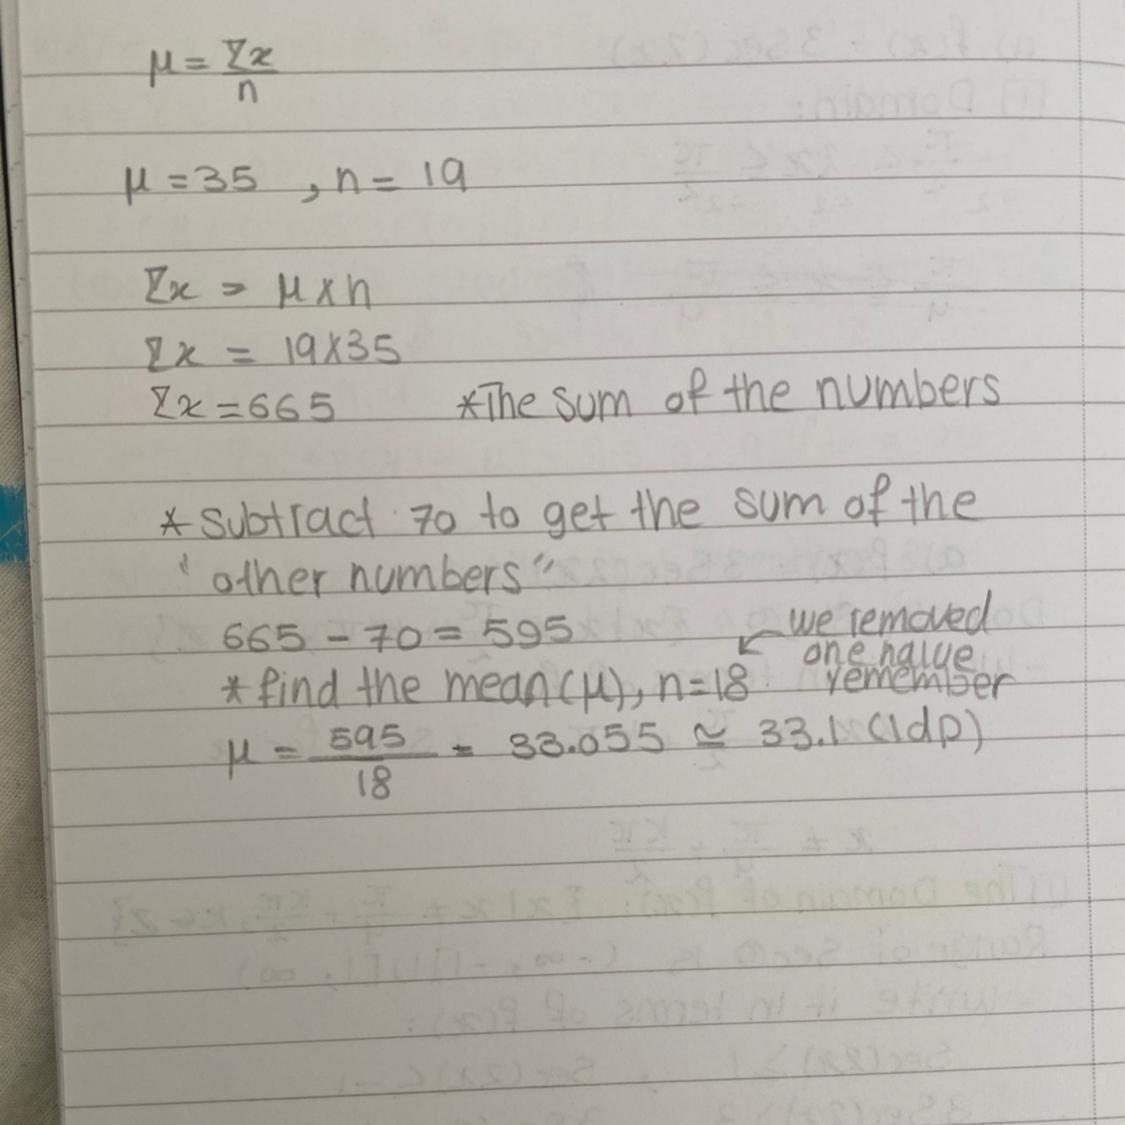 μ = Σx/n
μ = 35 , n = 19
Σx = μ x n
Σx = 19x35
Σx = 665 *The sum of the numbers
* subtract 70 to get the sum of the
"other numbers"
665 - 70 = 595
we removed
one value
remember
* find the mean(μ), n=18
μ = 595/18 = 33.055 ≃ 33.1 (1dp)